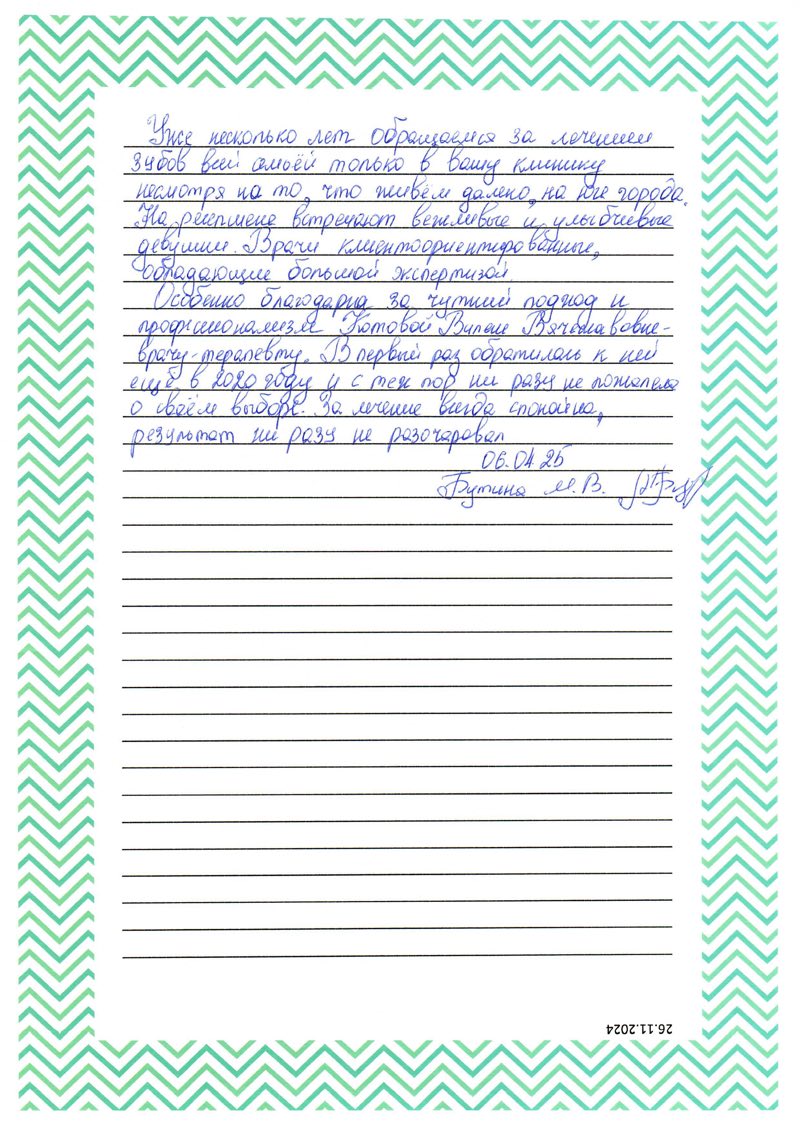 Уже несколько лет обращаемся за лечением
зубов всей семьёй только в вашу клинику
несмотря на то, что живём далеко, на юге города.
На ресепшене встречают вежливые и улыбчивые
девушки. Врачи клиентоориентированные,
обладающие большой экспертизой.
Особенно благодарна за чуткий подход и
профессионализм Котовой Вилене Вячеславовне-
врачу-терапевту. В первый раз обратилась к ней
ещё в 2020 году и с тех пор ни разу не пожалела
о своём выборе. За лечение всегда спокойна,
результат ни разу не разочаровал
06.04.25
Бутина М.В.
26.11.2024